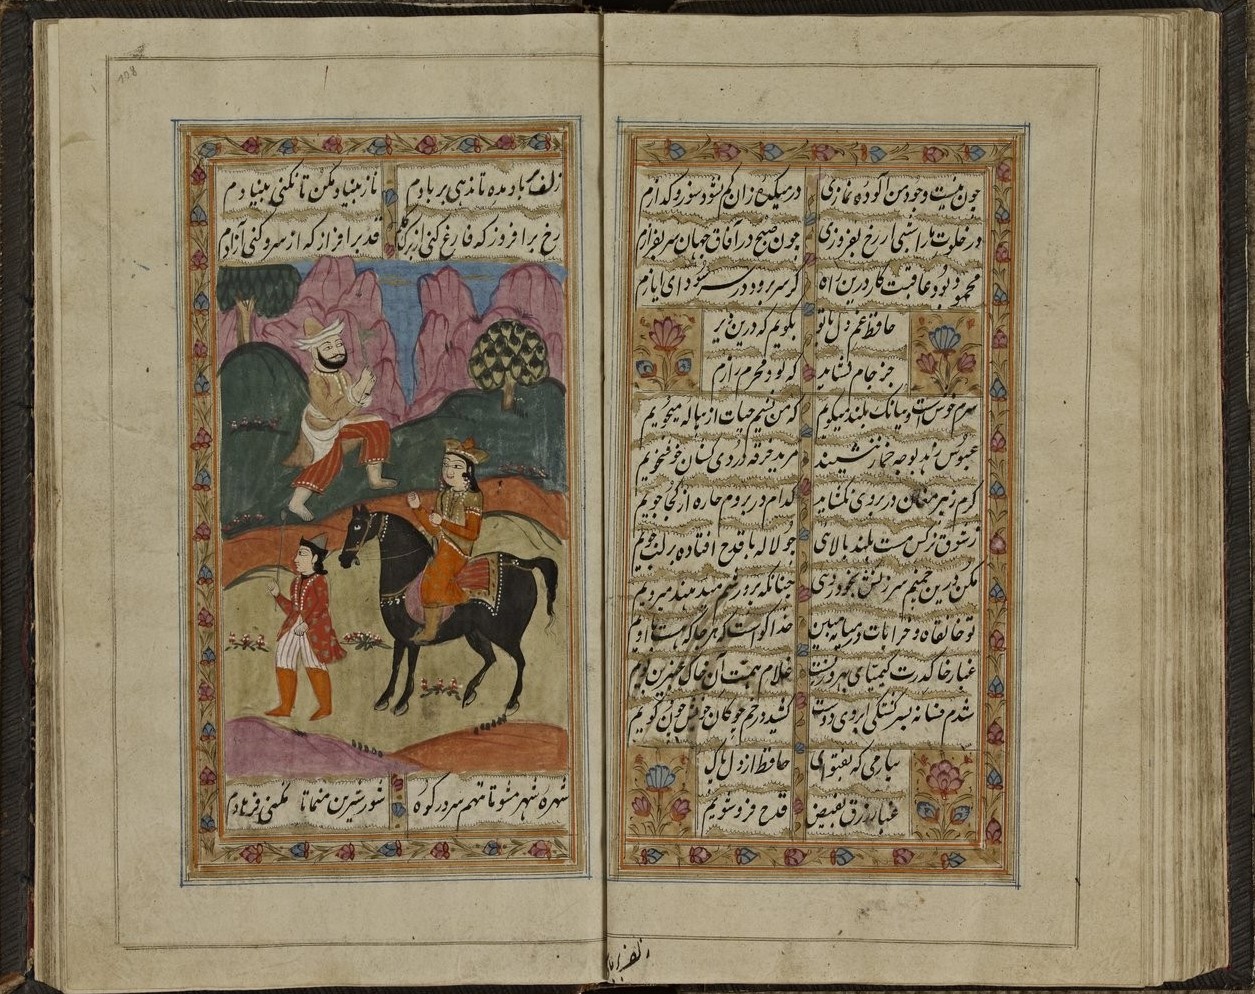 چون نیست وجود من آلوده نمازی در میکده زان کم نشود سوز و گدازم
در خلوت ما را شبی ار رخ بفروزی چون صبح در آفاق جهان سر بفرازم
محمود بود عاقبت کار درین راه گر سر برود در سر سودای ایازم
حافظ غم دل با تو بگویم که درین دیر
جز جام نشاید که بود محرم رازم
سرم خوش است و ببانک بلند میگویم که من نسیم حیات از پیاله میجویم
عبوس زهد بوجه خمار ننشیند مرید خرقه دردی کشان خوشخویم
گرم نه پیر مغان در بروی بگشاید کدام در بزنم چاره از کجا جویم
ز شوق نرگس مست بلند بالای چو لاله با قدح افتاده بر لب جویم
مکن درین چمنم سرزنش بخودروی چنانکه پرورشم میدهند میرویم
تو خانقاه و خرابات در میانه مبین خدا گواست که هر جا که هست با اویم
غبار راه گدرت کیمیای بهروزیست غلام همت آن خاک عنبرین بویم
شدم فسانه بسر گشتگی ابروی دوست کشید در خم چوگان خویش چون گویم
بیار می که بفتوای حافظ از دل پاک
غبار زرق بفیض قدح فرو شویم
زلف
زلف بر باد مده تا ندهی بر بادم ناز بنیاد مکن تا نکنی بنیادم
رخ برافروز که فارغ کنی از برگ گلم قد برافراز که از سرو کنی آزادم
شهره شهر مشو تا ننهم سر در کوه شور شیرین منما تا نکنی فرهادم